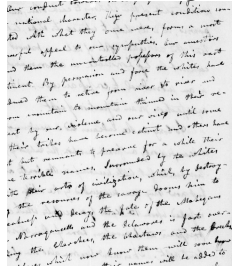 conduct toward
national character. Their present condition con-
ted with what they once were, forms a most
erful appeal to our sympathies, our ancestors
nd them the uncontrolled possessors of this vast
tinent. By persuasion and force the whites have
duced them to retire from river to river and
om mountain to mountain thinned in their re-
eat by war, violence, and our vices until some
their tribes have become extinct and others have
t but remnants to preserve for a while their
terrible names. Surrounded by the whites
ith their arts of civilization, which, by destroy-
the resources of the savage dooms him to
eakness and decay, the fate of the Mohegans
Narragansetts and the Delawares is fast over-
ing the Cherokees, the Choctaws and the Creeks
know them will soon
names will be added to